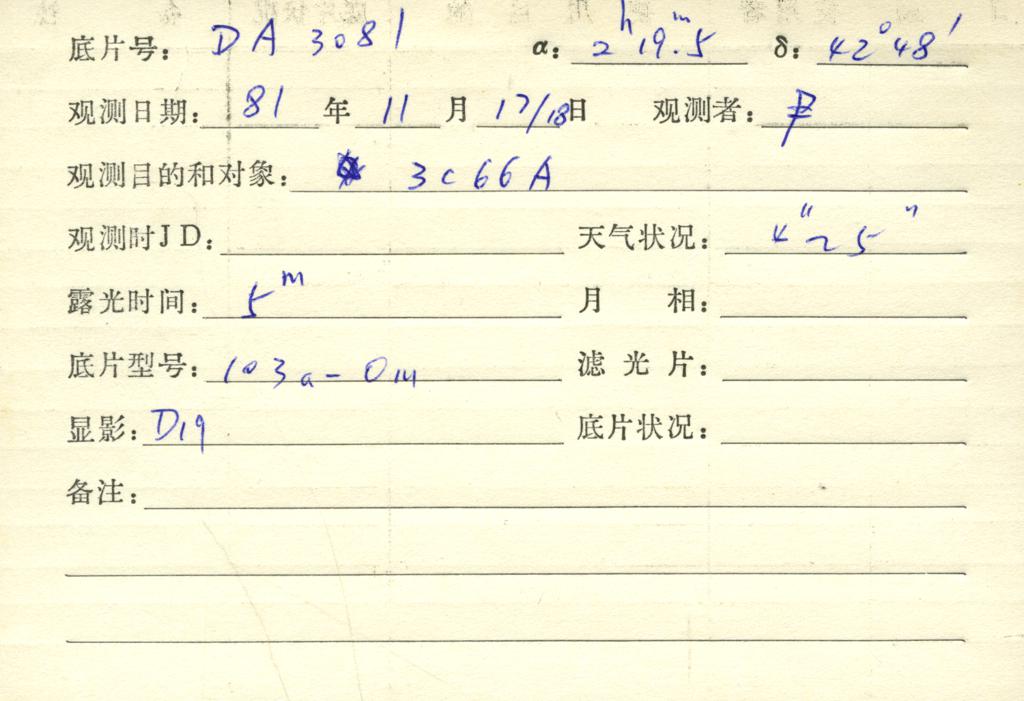 底片号: DA 3081 α: 2ʰ 19ᵐ.5 δ: 42°48′
观测日期: 81 年 11 月 17/18 日 观测者:
观测目的和对象: 3C66A
观测时JD: 天气状况: 4″~5″
露光时间: 5ᵐ 月 相:
底片型号: 103a-O 滤光片:
显影: D19 底片状况:
备注: